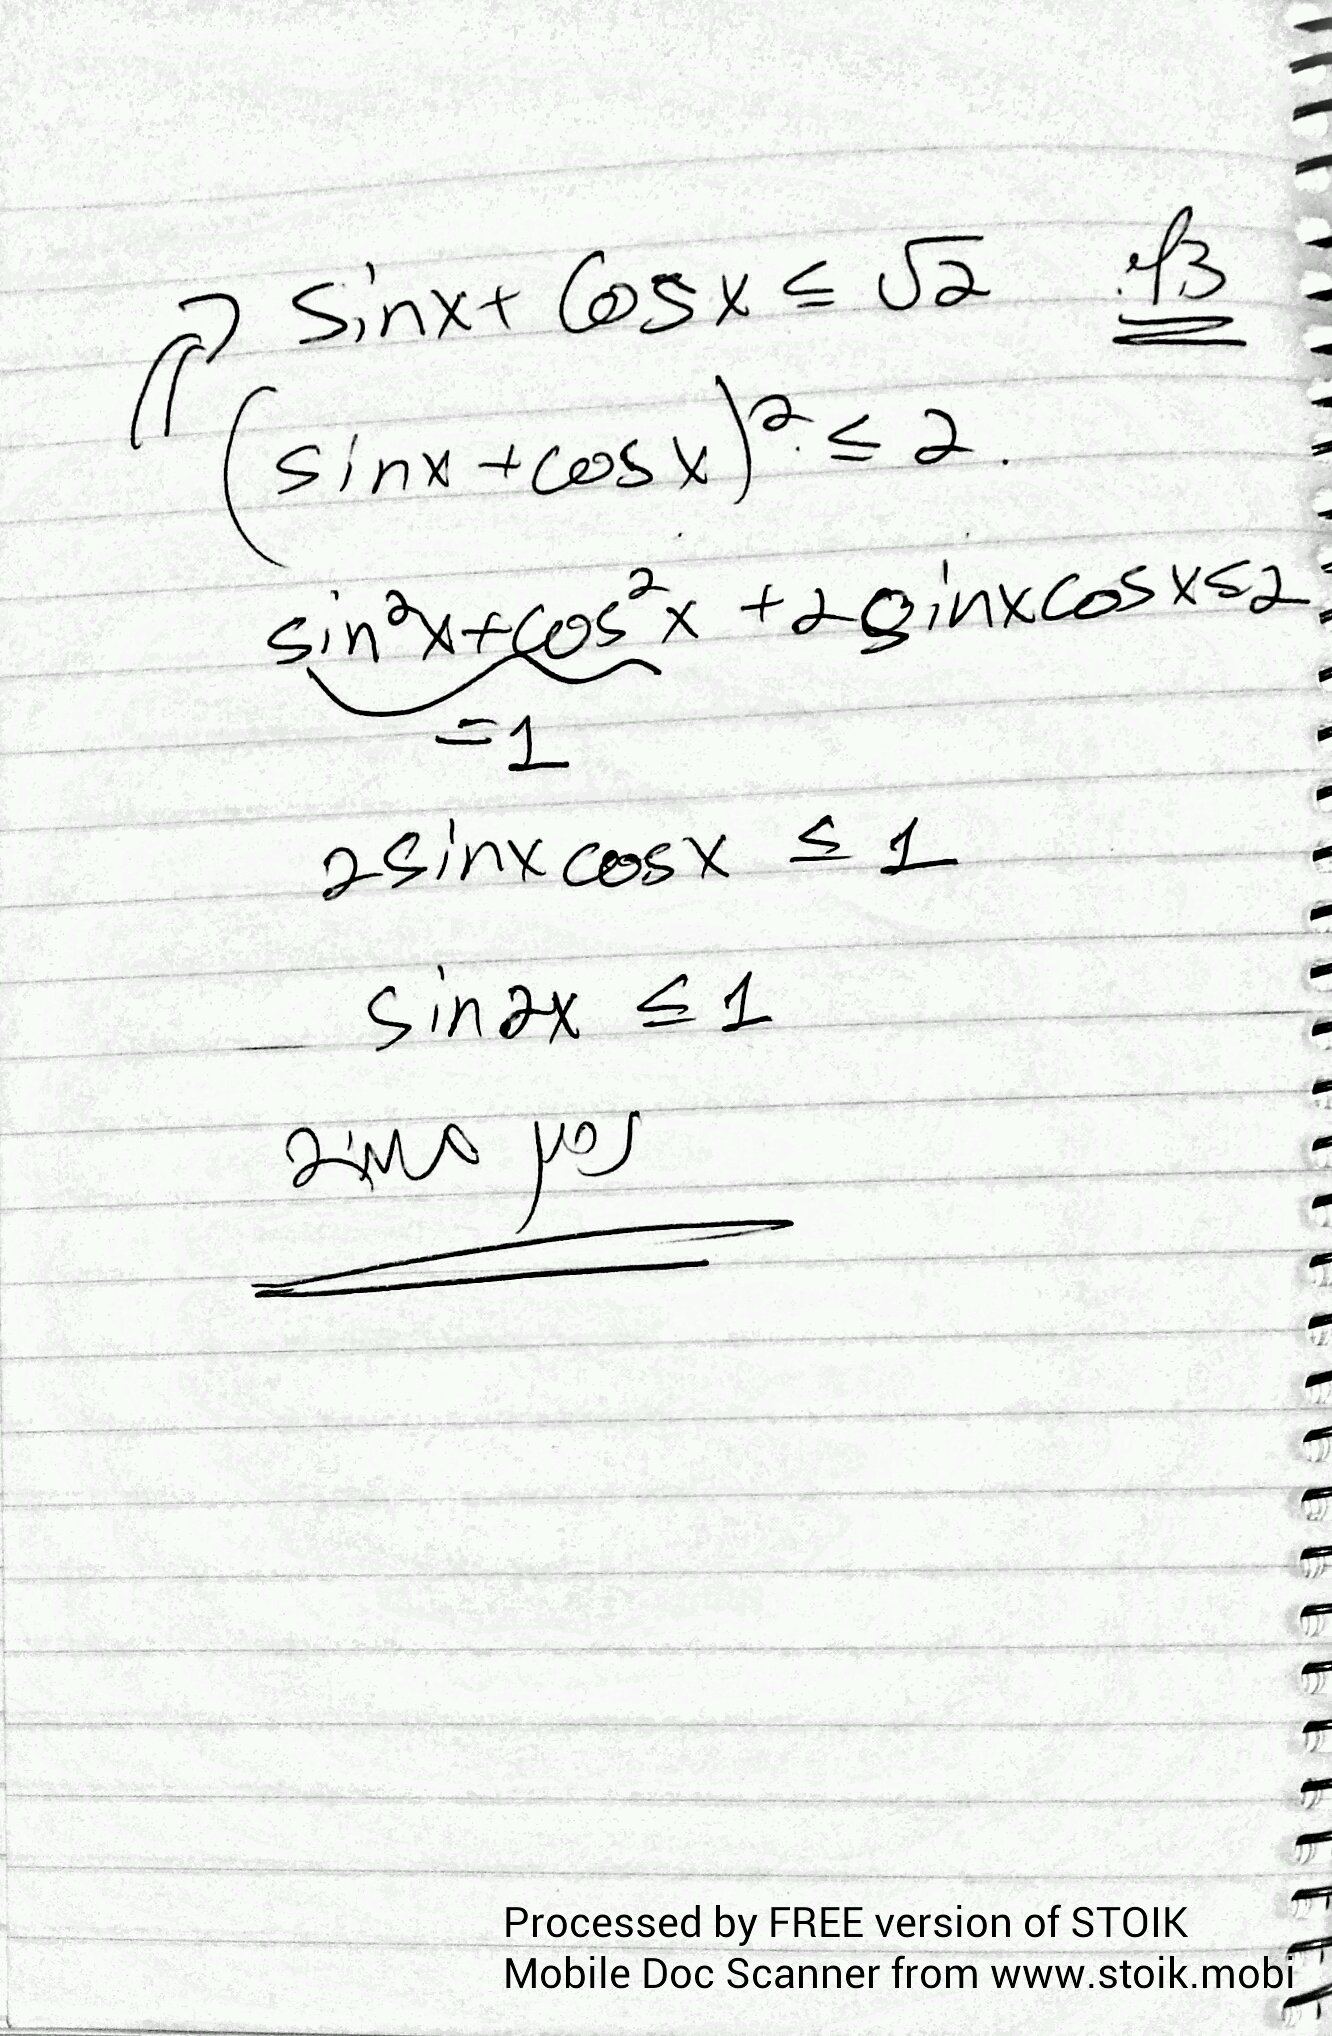 sinx + cosx ≤ √2 צ"ל
(sinx + cosx)² ≤ 2.
sin²x + cos²x + 2sinxcosx ≤ 2
= 1
2sinxcosx ≤ 1
sin2x ≤ 1
Processed by FREE version of STOIK
Mobile Doc Scanner from www.stoik.mobi